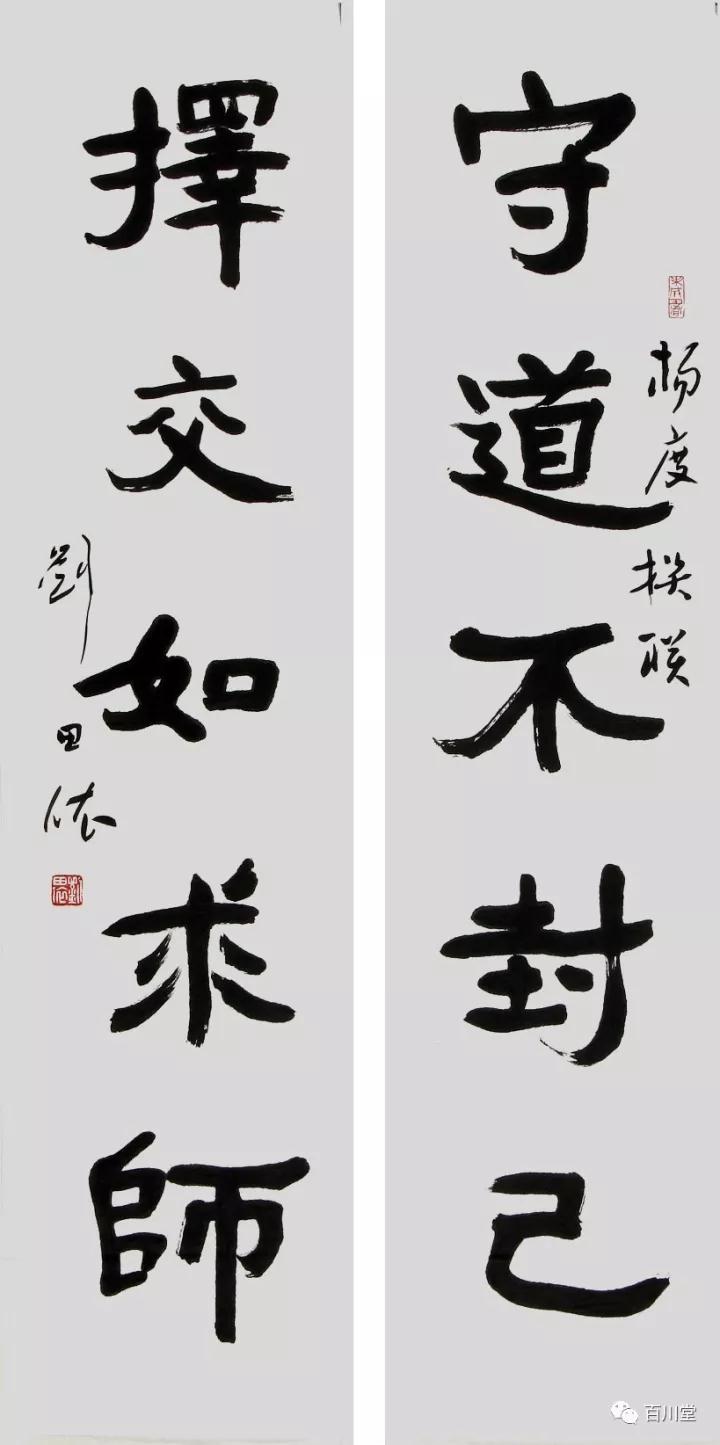 守道不封己
杨度撰联
擇交如求師
劉田依
百川堂